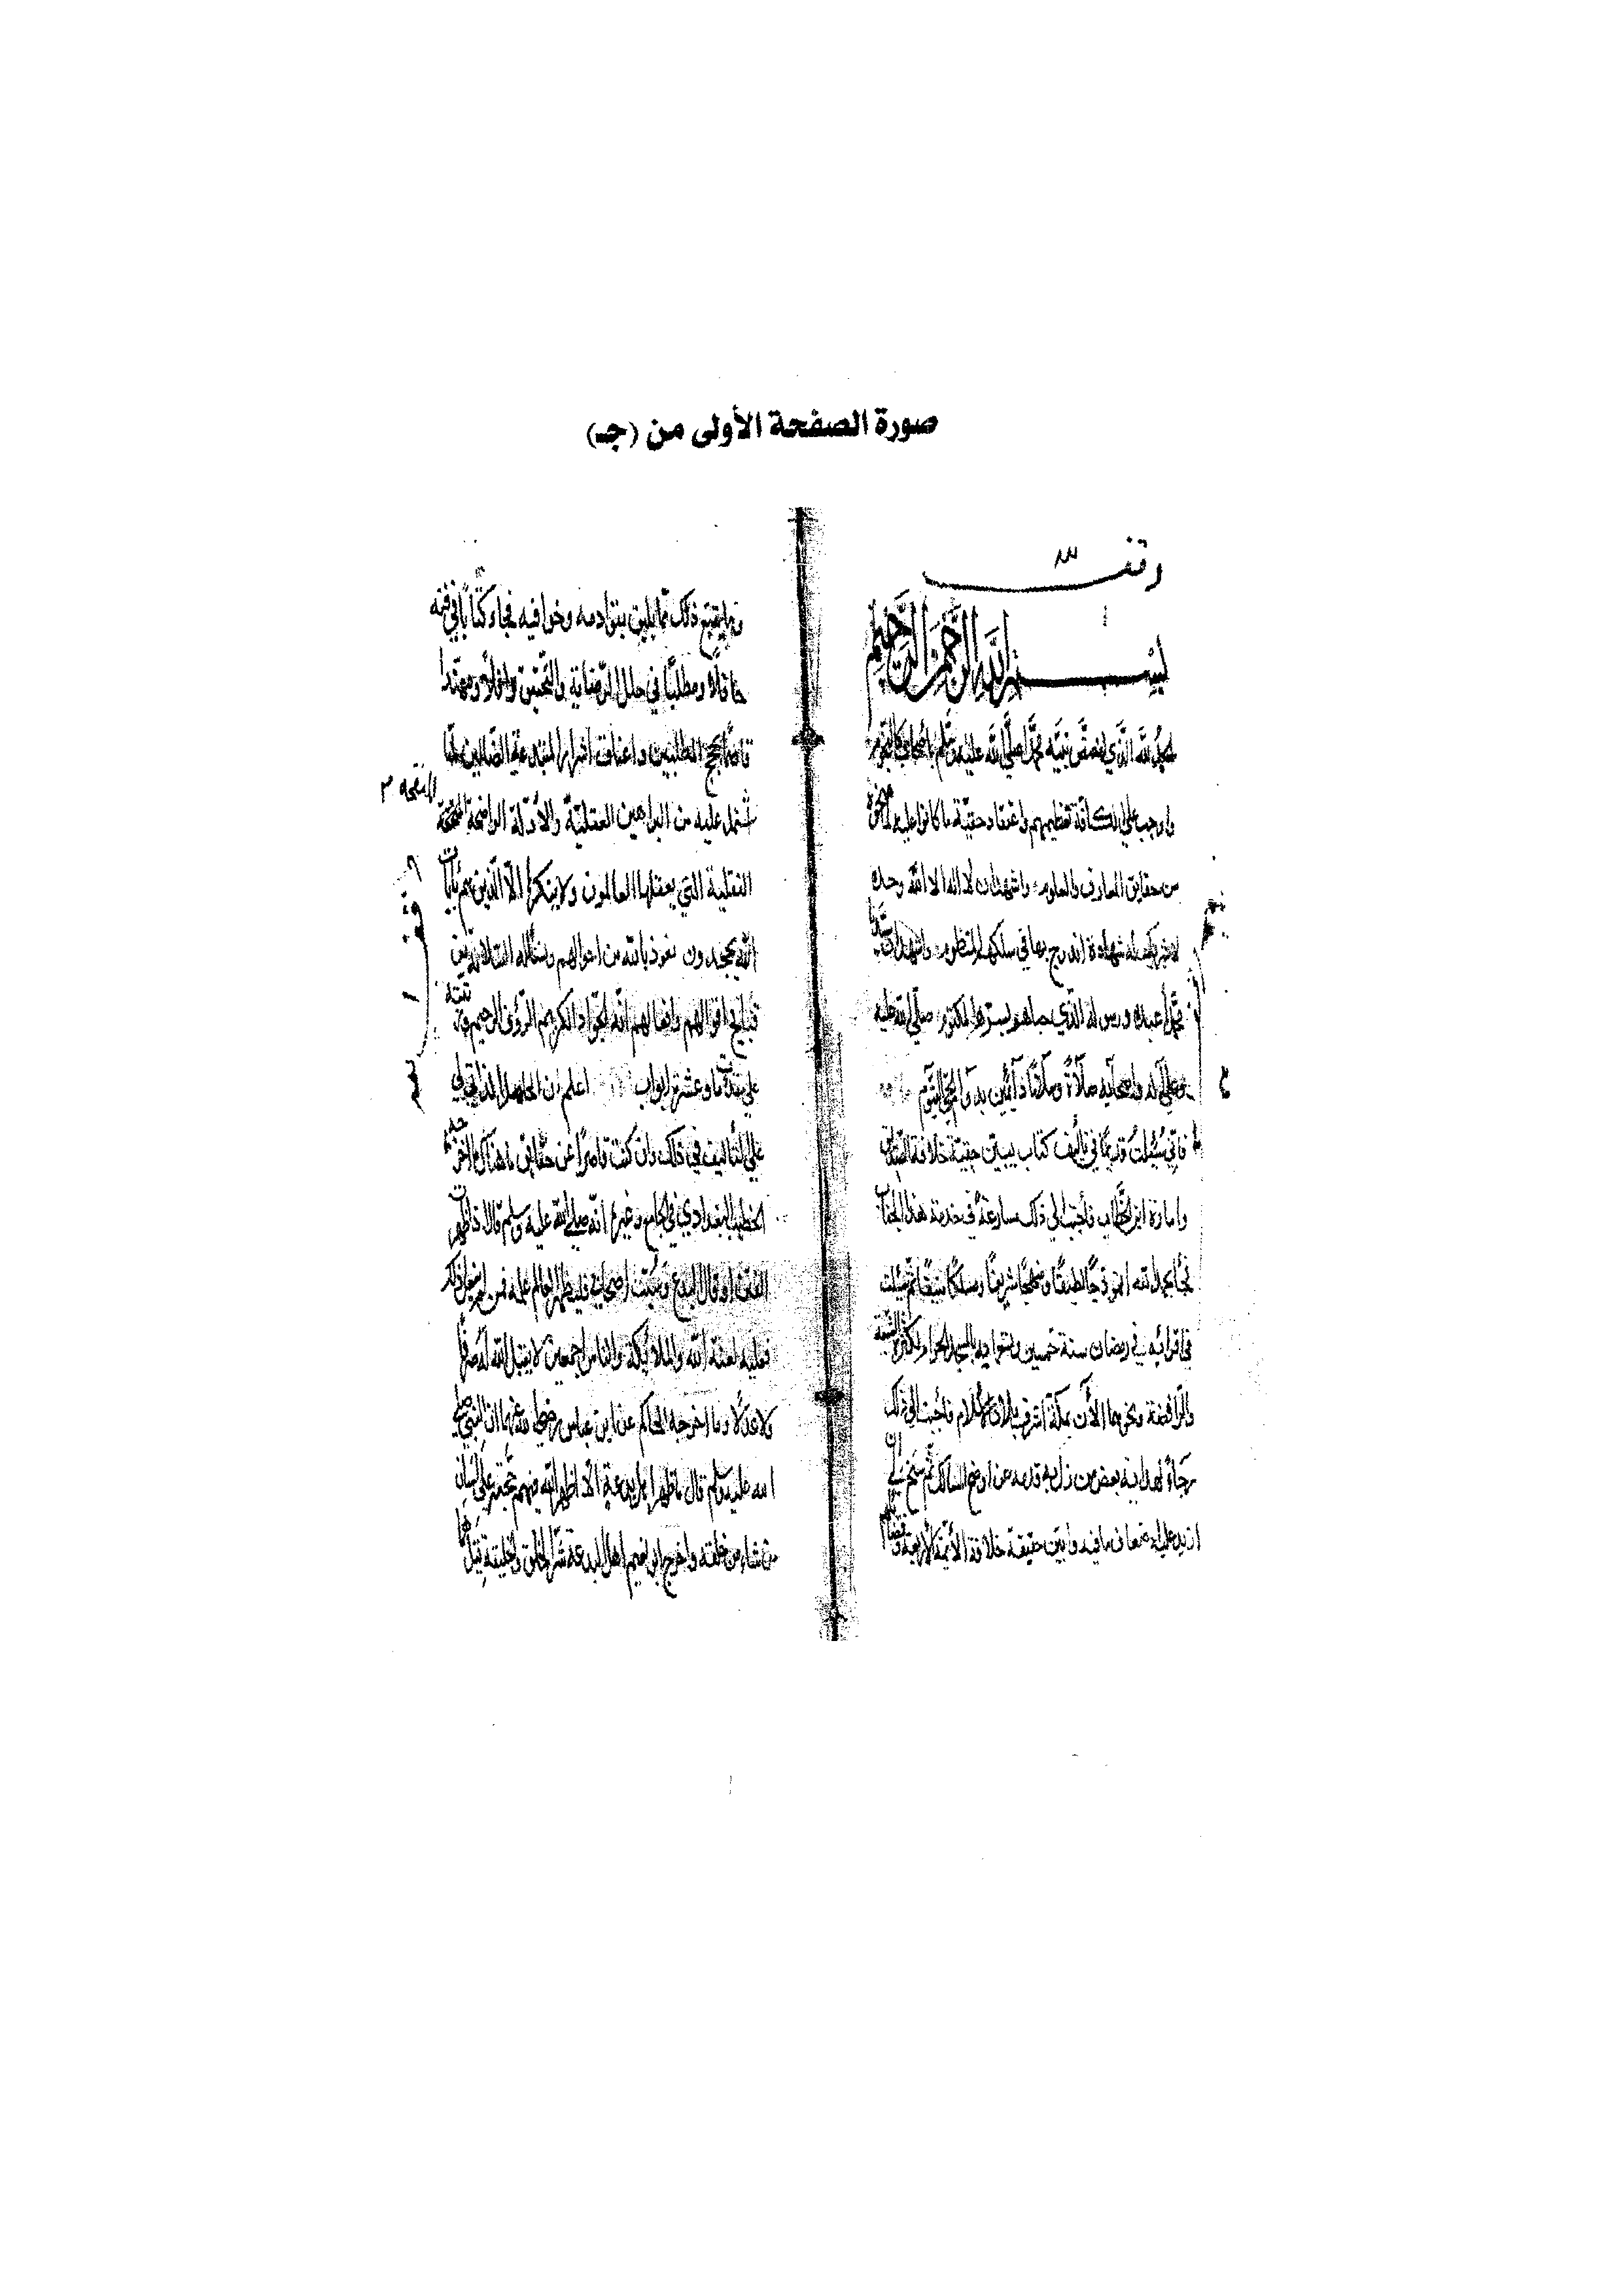 صورة الصفحة الأولى من (جـ)
وقف
لله
بسم الله الرحمن الرحيم
الحمد لله الذي اختص نبيه محمدا صلى الله عليه وسلم بأصحاب كالنجوم
وأوجب على الكافة تعظيمهم واعتقاد حقية ما كانوا عليه لما منحوه
من حقايق المعارف والعلوم وأشهد ان لا اله الا الله وحده
لا شريك له شهادة اندرج بها في سلكهم المنظوم وأشهد ان سيدنا
محمدا عبده ورسوله الذي حباهم بسره المكتوم صلى الله عليه
وعلى آله وأصحابه صلاة وسلاما دآئمين بدوام الحي القيوم
فاني سئلت قديما في تأليف كتاب يبين حقية خلافة الصديق
وامارة ابن الخطاب فأجبت الى ذلك مسارعة في خدمة هذا الجناب
فجآ بحمد لله انموذجا لطيفا ومنهاجا شريفا ومسلكا منيفا ثم سئلت
في اقرائه في رمضان سنة خمسين وتسعماية بالمسجد الحرام لكثرة الشيعة
والرافضة ونحوهما الآن بمكة اشرف بلاد الاسلام فأجبت الى ذلك
رجاء لهداية بعض من زل به قدمه عن اوضح المسالك ثم سنح لي ان
ازيد عليه اضعاف ما فيه وابين حقيقة خلافة الائمة الأربعة وفضائلهم
وما يتبع ذلك مما يليق بقوادمه وخوافيه فجاء كتابا في فنه
حافلا ومطلبا في حلل الرصانة والتحقيق رافلا ومهندا
قاصما لحجج المبطلين واعناق اشرار المبتدعة الضالين لما
اشتمل عليه من البراهين العقلية والأدلة الواضحة
النقلية التي يعقلها العالمون ولا ينكرها الا الذين هم بآيات
الله يجحدون نعوذ بالله من احوالهم ونسأله السلامة من
قبايح اقوالهم وافعالهم انه الجواد الكريم الرؤف الرحيم ورتبته
على مقدمات وعشرة ابواب اعلم ان الحامل الداعي لي
على التأليف في ذلك وان كنت قاصرا عن حقايق ما هنالك ما اخرجه
الخطيب البغدادي في الجامع وغيره انه صلى الله عليه وسلم قال اذا ظهرت
الفتن او قال البدع وسبت اصحابي فليظهر العالم علمه فمن لم يفعل ذلك
فعليه لعنة الله والملائكة والناس اجمعين لا يقبل الله له صرفا
ولا عدلا وما اخرجه الحاكم عن ابن عباس رضي الله عنهما ان النبي صلى
الله عليه وسلم قال ما ظهر اهل بدعة الا اظهر الله فيهم حجته على لسان
من شاء من خلقه واخرج ابو نعيم اهل البدعة شر الخلق والخليقة قيل هما